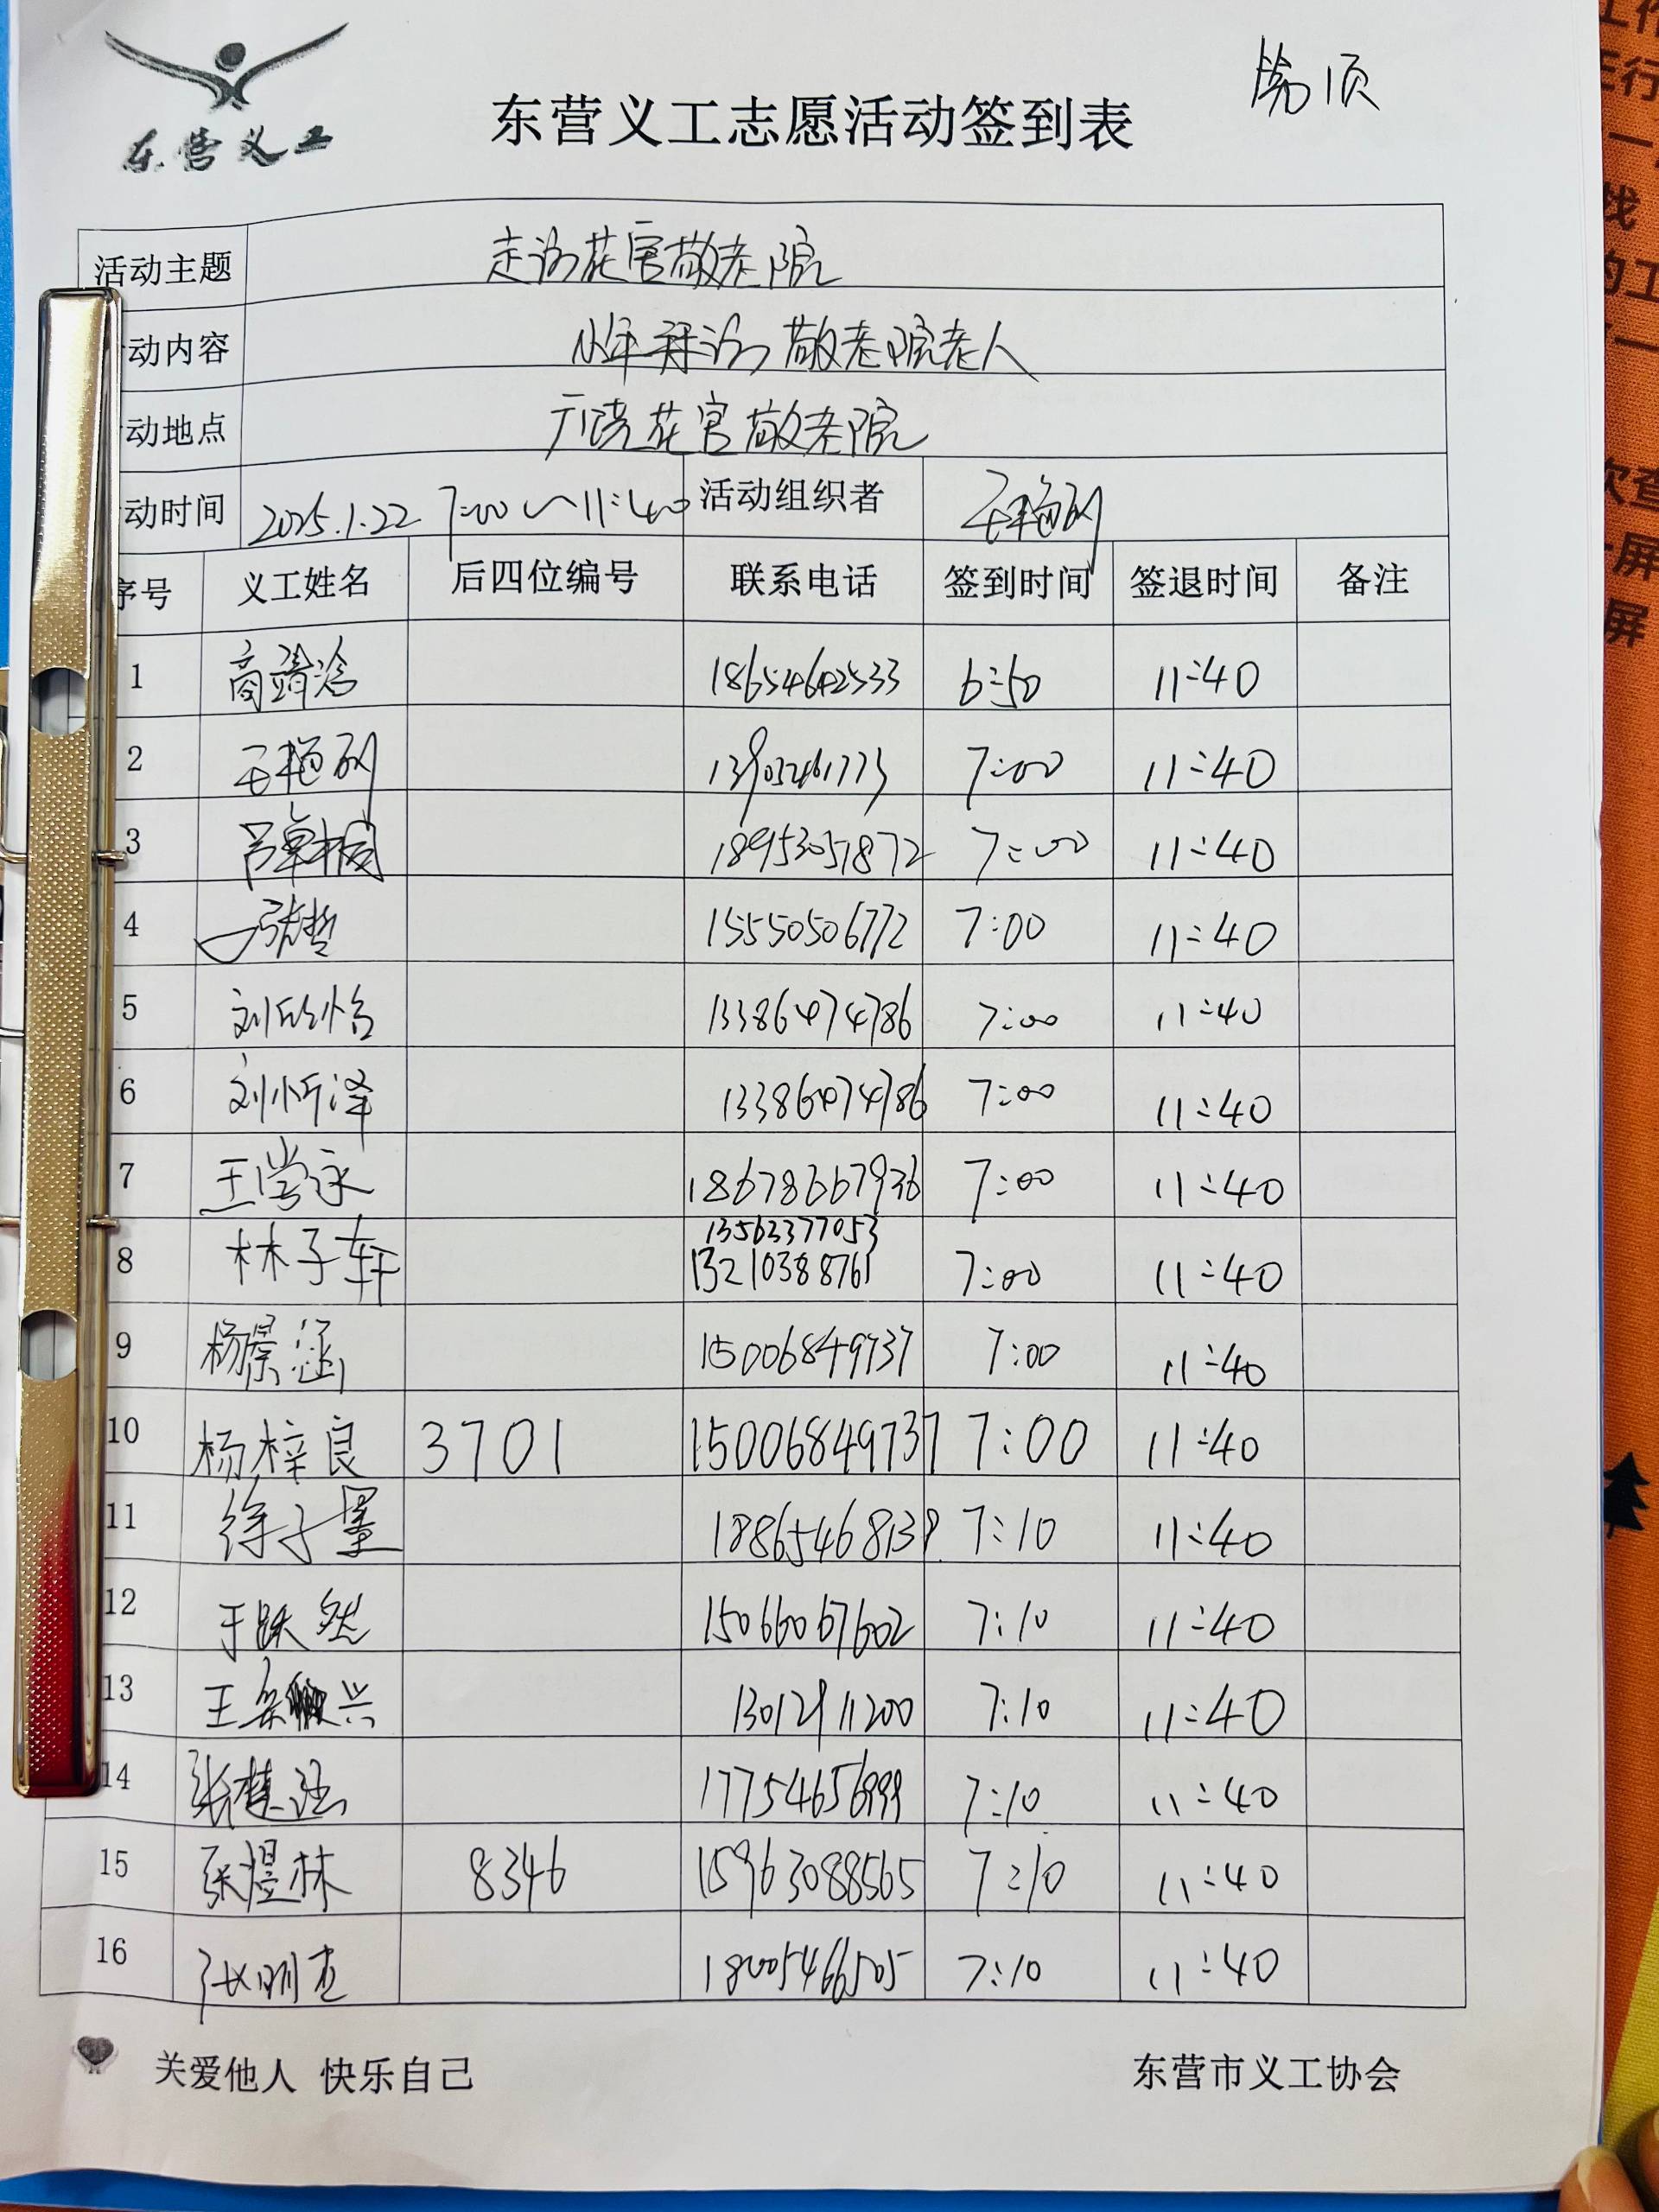 东营义工
东营义工志愿活动签到表
第1页
活动主题 走访花官敬老院
动内容 小年 敬老院老人
动地点 广饶花官敬老院
动时间 2025.1.22 7:00~11:40 活动组织者 王艳
序号 义工姓名 后四位编号 联系电话 签到时间 签退时间 备注
1 高 18654642533 6:50 11:40
2 王艳 7:00 11:40
3 吕卓桐 18953057872 7:00 11:40
4 张哲 15550506772 7:00 11:40
5 刘欣怡 13386474786 7:00 11:40
6 刘忻泽 13386474786 7:00 11:40
7 王学永 18678667936 7:00 11:40
13563377053
8 林子轩 13210388761 7:00 11:40
9 杨景涵 15006849737 7:00 11:40
10 杨梓良 3701 15006849737 7:00 11:40
11 徐子墨 18865468139 7:10 11:40
12 于跃然 15066067602 7:10 11:40
13 王 兴 13012911200 7:10 11:40
14 张 涵 17754656999 7:10 11:40
15 张煜林 8346 15963088565 7:10 11:40
16 赵明 18005466505 7:10 11:40
关爱他人 快乐自己 东营市义工协会